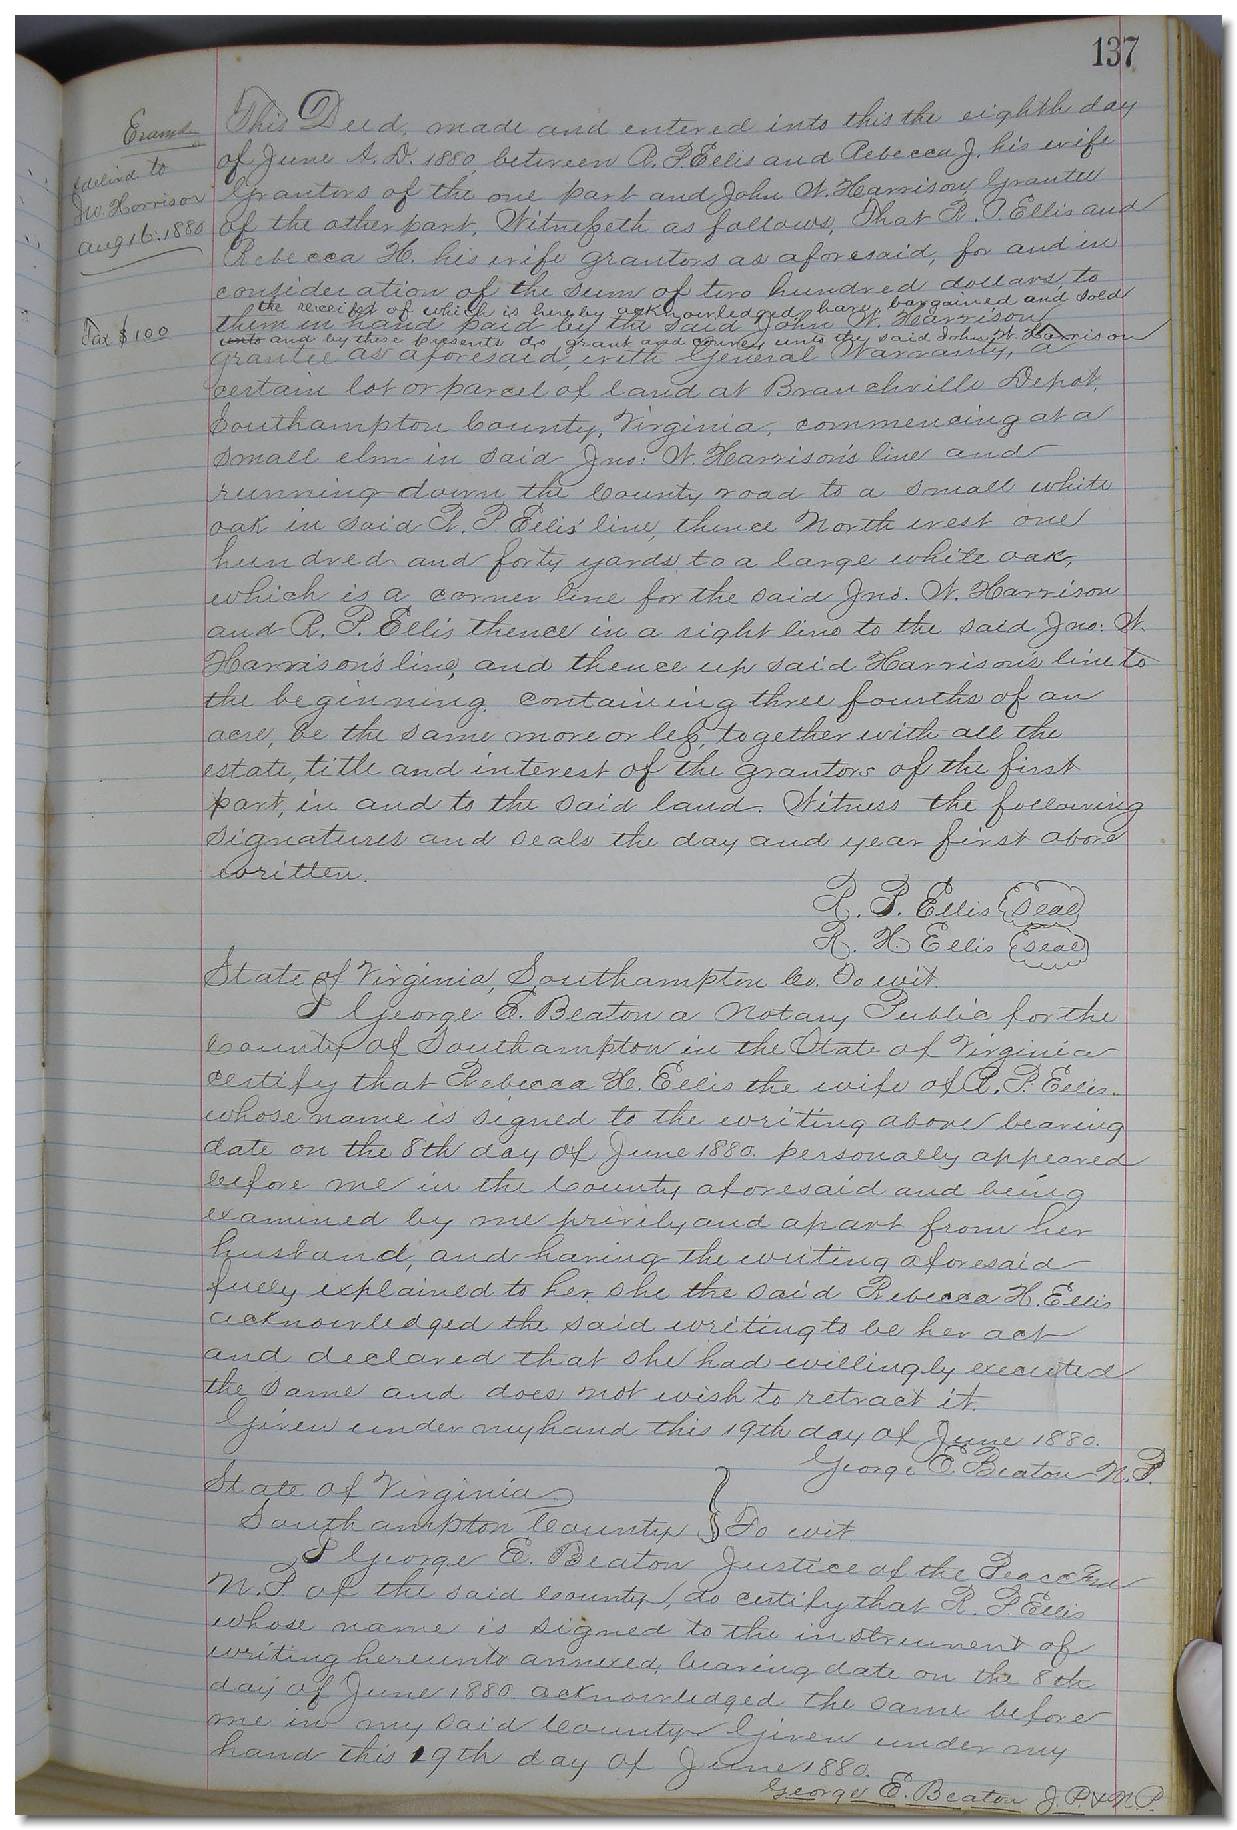 137
Examd
& delivd to
Jno. W. Harrison
Aug 16. 1880
Tax $1.00
This Deed, made and entered into this the eighth day
of June A.D. 1880, between R. P. Ellis and Rebecca J. his wife
Grantors of the one part and John W. Harrison Grantee
of the other part, Witnesseth as follows, That R. P. Ellis and
Rebecca H. his wife grantors as aforesaid, for and in
consideration of the sum of two hundred dollars, to
the receipt of which is hereby acknowledged, have bargained and sold
them in hand paid by the said John W. Harrison
and by these presents do grant and convey unto the said John W. Harrison
grantee as aforesaid, with General Warranty, a
certain lot or parcel of land at Branchville Depot,
Southampton County, Virginia, commencing at a
small elm in said Jno: W. Harrison's line and
running down the County road to a small white
oak in said R. P. Ellis' line, thence North west one
hundred and forty yards, to a large white oak,
which is a corner line for the said Jno. W. Harrison
and R. P. Ellis thence in a right line to the said Jno: W.
Harrison's line, and thence up said Harrison's line to
the beginning. containing three fourths of an
acre, be the same more or less, together with all the
estate, title and interest of the grantors of the first
part, in and to the said land. Witness the following
signatures and seals the day and year first above
written.
R. P. Ellis Seal
R. H. Ellis Seal
State of Virginia, Southampton Co. To wit.
I George E. Beaton a Notary Public for the
County of Southampton in the State of Virginia
certify that Rebecca H. Ellis the wife of R. P. Ellis
whose name is signed to the writing above bearing
date on the 8th day of June 1880. personally appeared
before me in the County aforesaid and being
examined by me privily and apart from her
husband, and having the writing aforesaid
fully explained to her, she the said Rebecca H. Ellis
acknowledged the said writing to be her act
and declared that she had willingly executed
the same and does not wish to retract it.
Given under my hand this 19th day of June 1880.
George E. Beaton N.P.
State of Virginia
Southampton County } To wit
I George E. Beaton Justice of the Peace and
N.P of the said County, do certify that R. P. Ellis
whose name is signed to the instrument of
writing hereunto annexed, bearing date on the 8th
day of June 1880 acknowledged the same before
me in my said County Given under my
hand this 19th day of June 1880.
George E. Beaton J.P. & N.P.